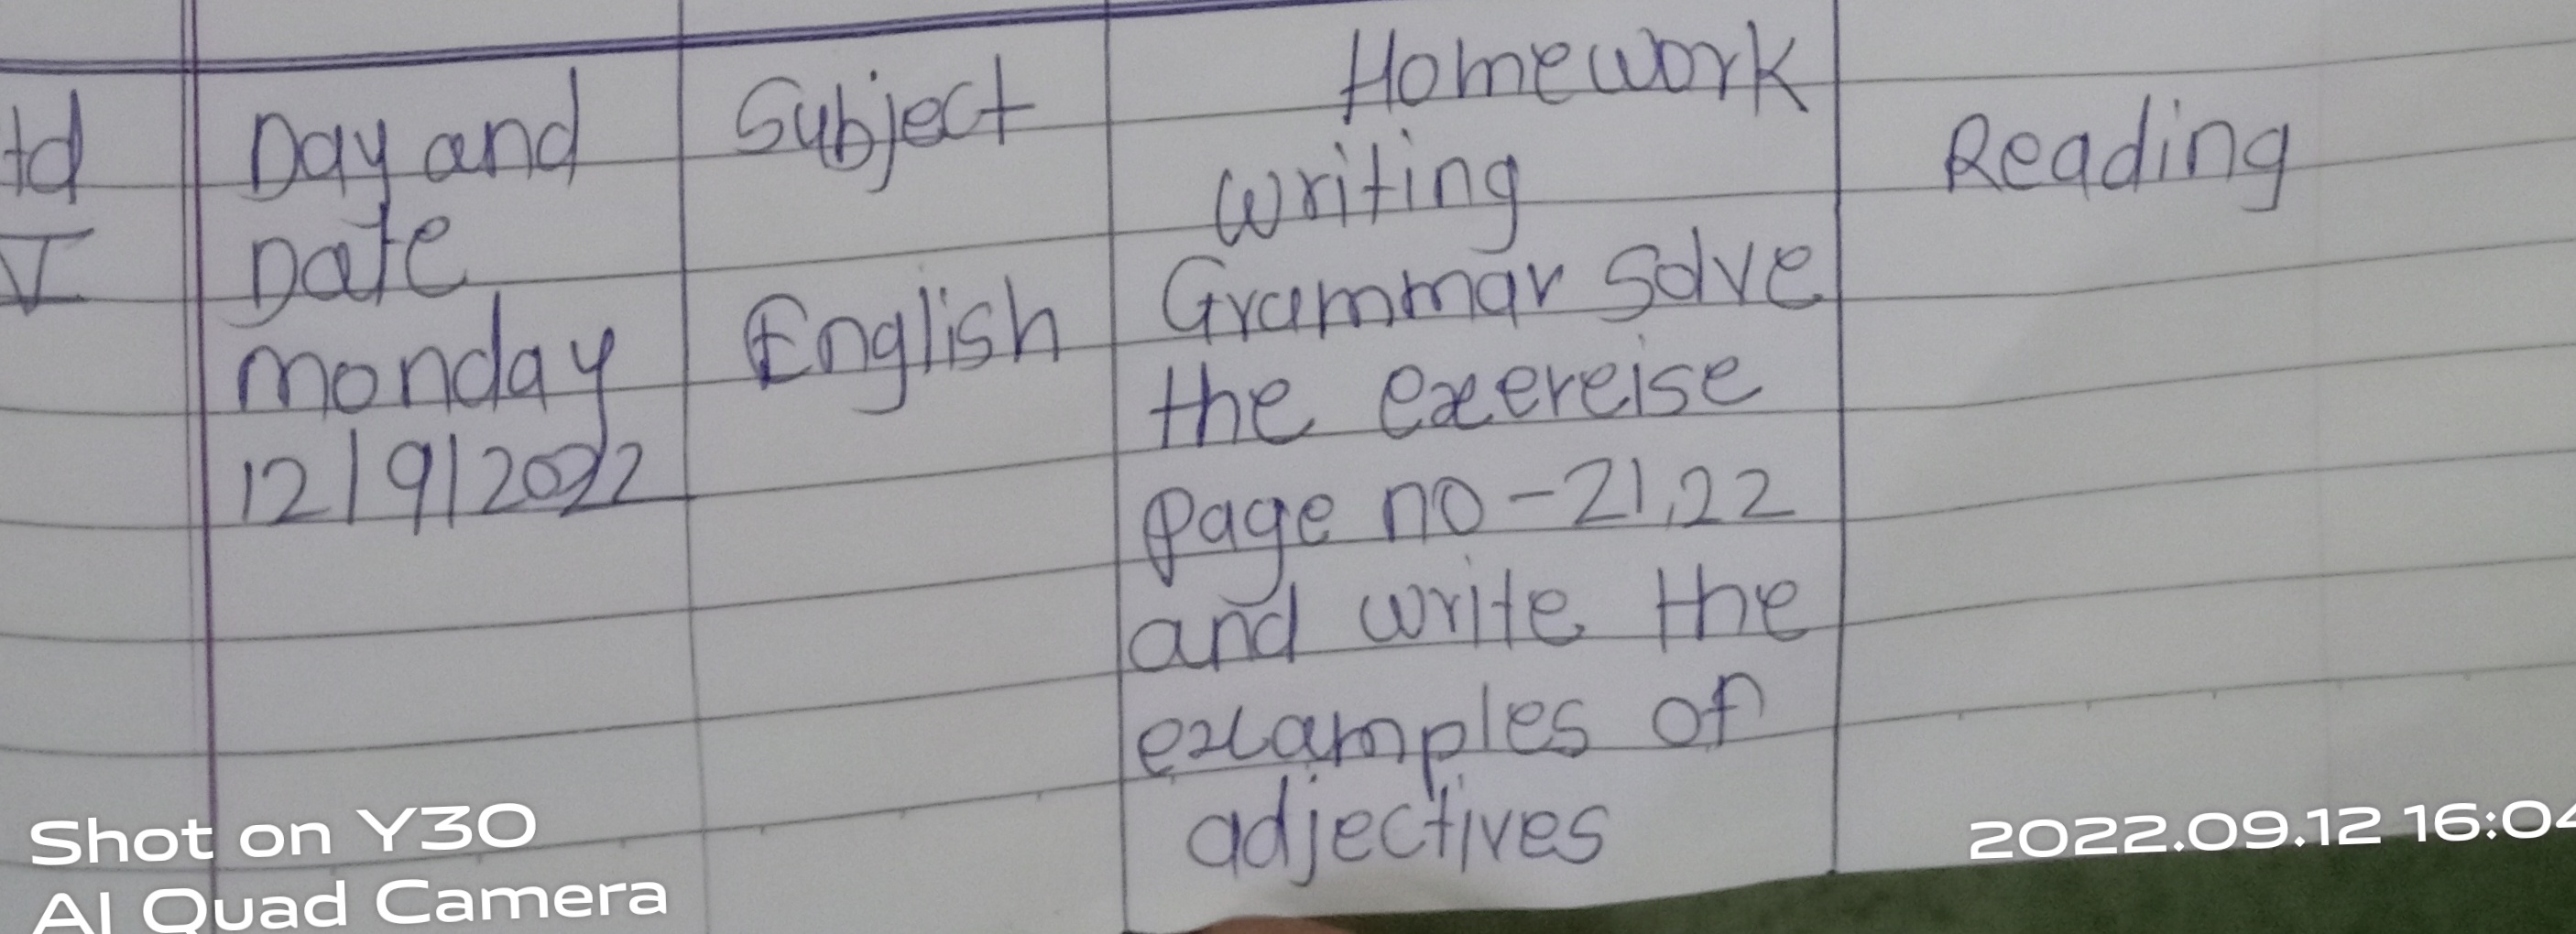 Homework
td Day and Subject Writing Reading
V Date
Monday English Grammar Solve
12/9/2022 the exereise
page no - 21,22
and write the
examples of
adjectives
Shot on Y30
AI Quad Camera
2022.09.12 16:04